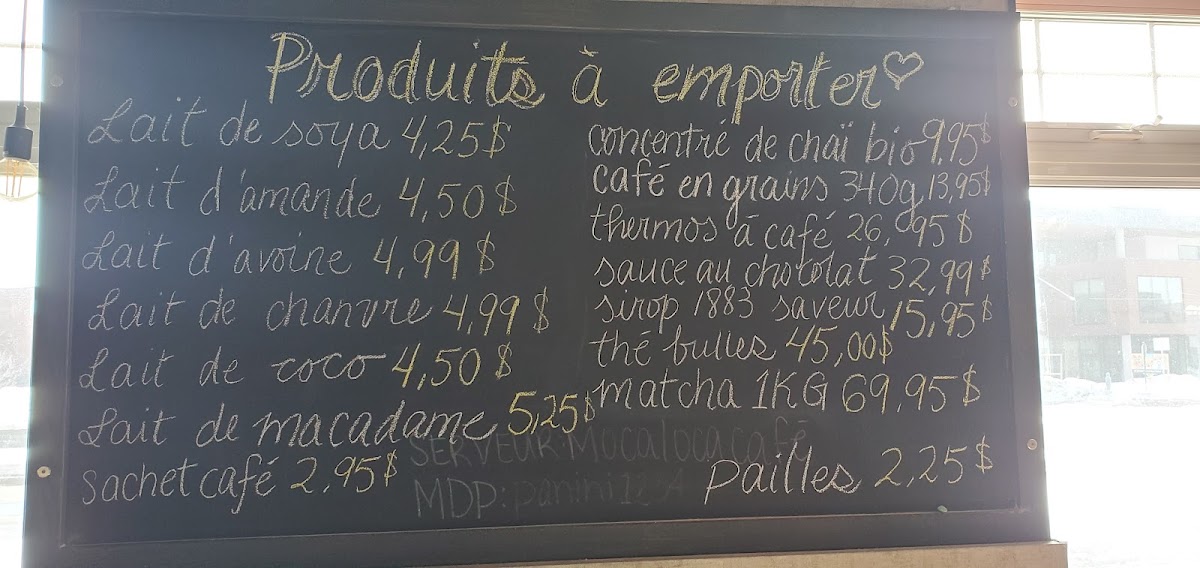 Produits à emporter
Lait de soya 4,25$
Lait d'amande 4,50$
Lait d'avoine 4,99$
Lait de chanvre 4,99$
Lait de coco 4,50$
Lait de macadame 5,25$
Sachet café 2,95$
concentré de chaï bio 9,95$
café en grains 340g 13,95$
thermos à café 26,95$
sauce au chocolat 32,99$
sirop 1883 saveur 15,95$
thé bulles 45,00$
matcha 1KG 69,95$
Pailles 2,25$
SERVEUR: Mocalocacafé
MDP: